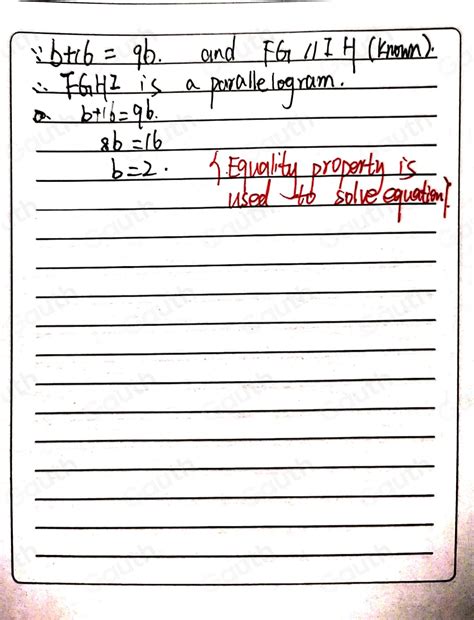 ∵ b+16 = 9b. and FG // IH (known).
∴ FGHI is a parallelogram.
b+16=9b.
8b =16
b=2. {Equality property is
used to solve equation}.